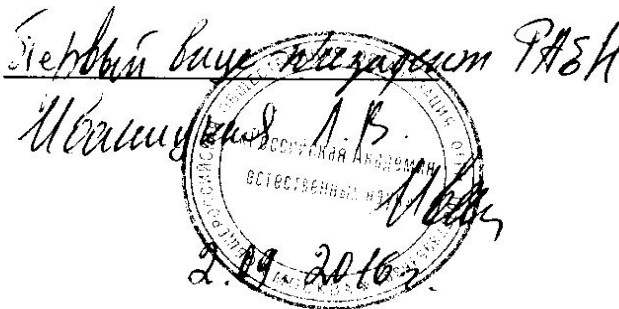 Первый вице президент РАЕН
Иваницкая Л.В.
Российская Академия
естественных наук
2.09.2016г.